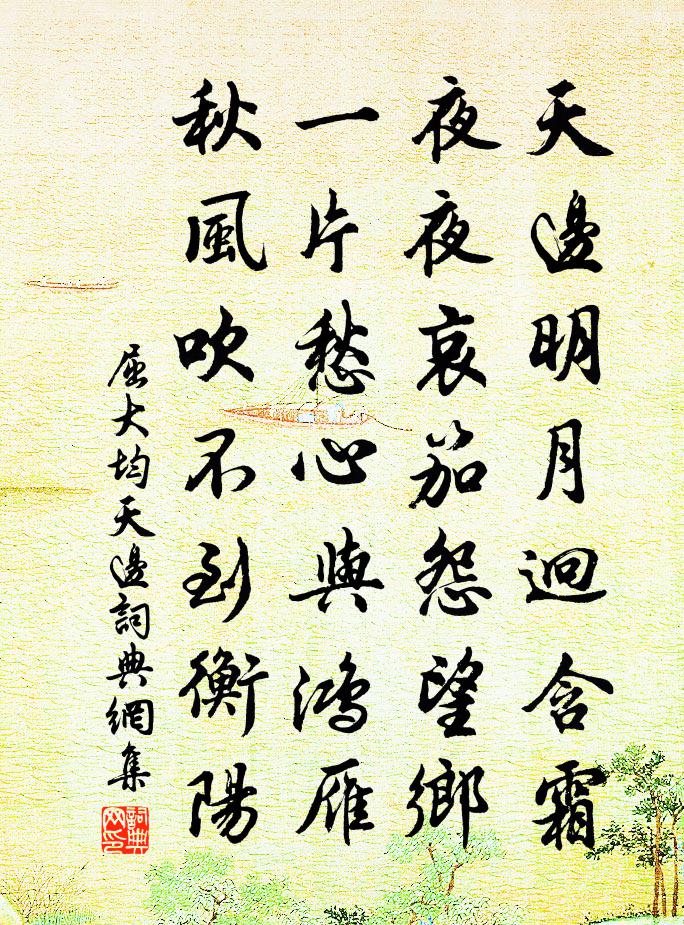 天邊明月迥含霜
夜夜哀笳怨望鄉
一片愁心與鴻雁
秋風吹不到衡陽
屈大均天邊詞典網集
詞典網印